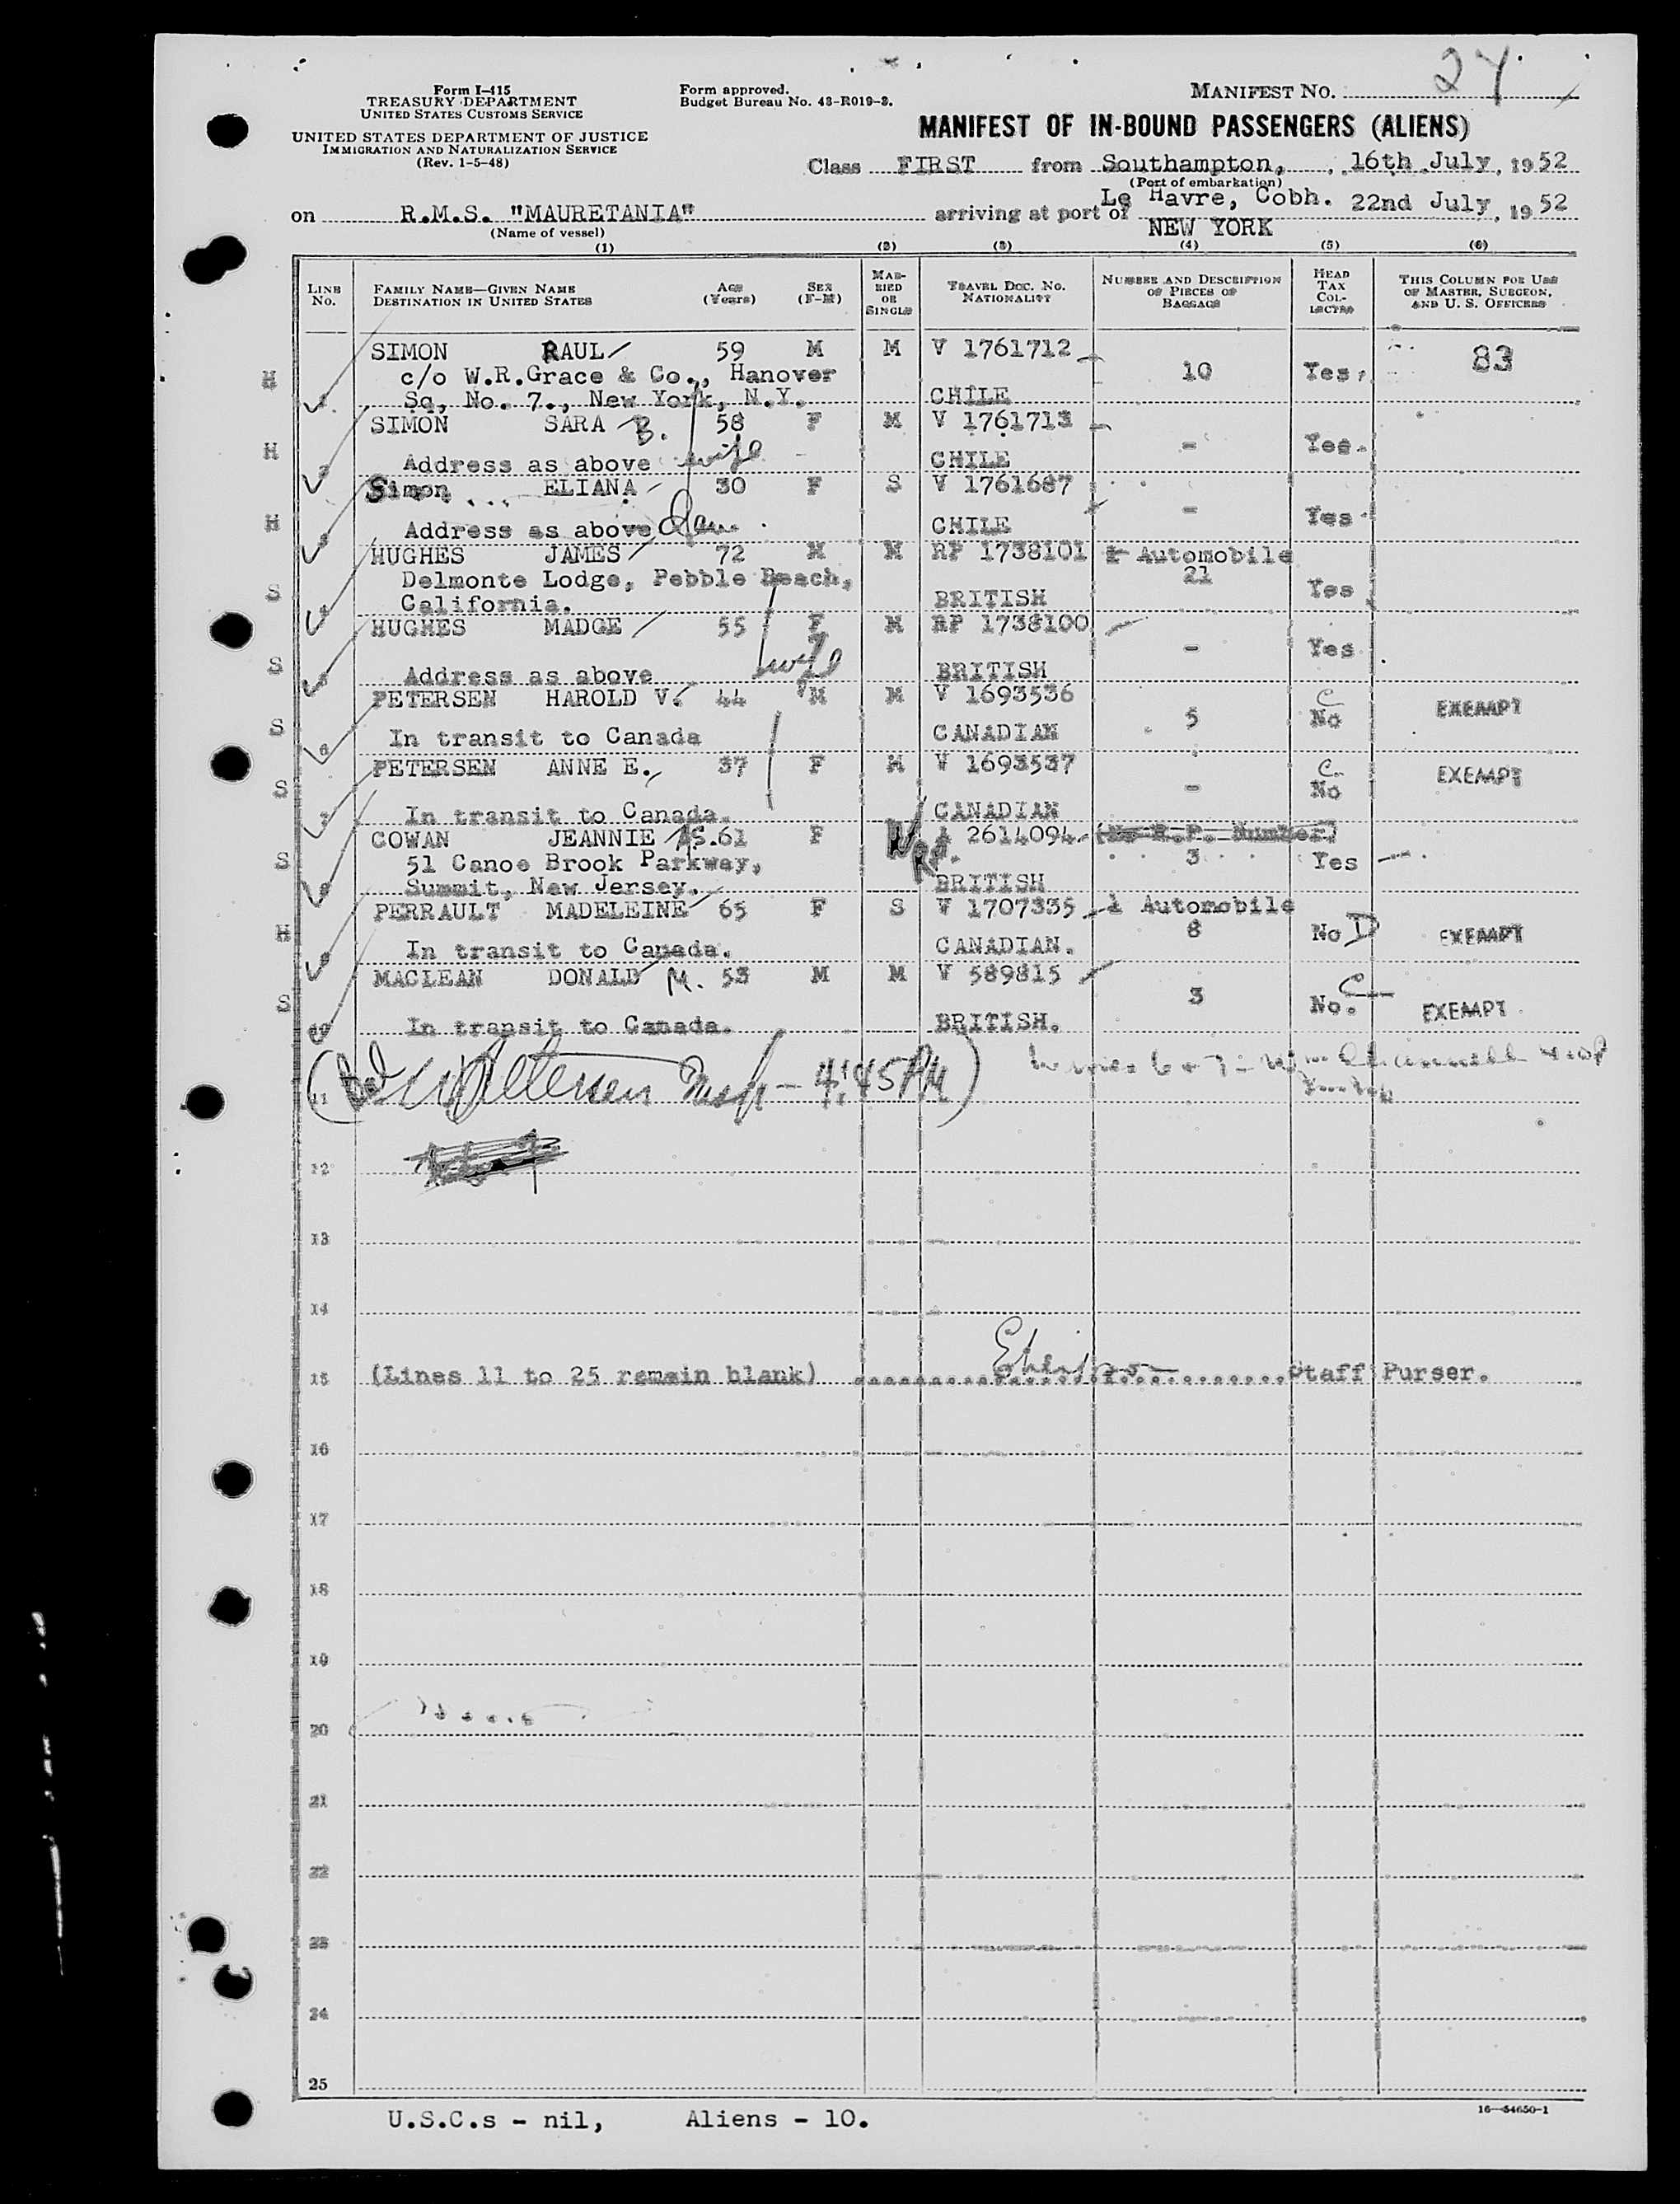 24
Form I-415
TREASURY DEPARTMENT
UNITED STATES CUSTOMS SERVICE
UNITED STATES DEPARTMENT OF JUSTICE
IMMIGRATION AND NATURALIZATION SERVICE
(Rev. 1-5-48)
Form approved.
Budget Bureau No. 43-R019-3.
MANIFEST NO.
MANIFEST OF IN-BOUND PASSENGERS (ALIENS)
Class FIRST from Southampton, 16th July, 1952
(Port of embarkation)
Le Havre, Cobh.
on R.M.S. "MAURETANIA" arriving at port of NEW YORK 22nd July, 1952
(Name of vessel)
(1) (2) (3) (4) (5) (6)
LINE NO.
FAMILY NAME—GIVEN NAME
DESTINATION IN UNITED STATES
AGE (Years)
SEX (F-M)
MARRIED OR SINGLE
TRAVEL DOC. NO.
NATIONALITY
NUMBER AND DESCRIPTION OF PIECES OF BAGGAGE
HEAD TAX COLLECTED
THIS COLUMN FOR USE OF MASTER, SURGEON, AND U. S. OFFICERS
SIMON RAUL 59 M M V 1761712
H c/o W.R.Grace & Co., Hanover 10 Yes. 83
1 Sq, No. 7., New York, N.Y. CHILE
SIMON SARA B. 58 F M V 1761713
H - Yes.
2 Address as above wife CHILE
Simon ELIANA 30 F S V 1761687
H - Yes
3 Address as above Dau. CHILE
HUGHES JAMES 72 M M RP 1738101 1 Automobile
S Delmonte Lodge, Pebble Beach, 21 Yes
4 California. BRITISH
HUGHES MADGE 55 F M RP 1738100
S - Yes
5 Address as above wife BRITISH
PETERSEN HAROLD V. 44 M M V 1693536
S 5 C No EXEMPT
6 In transit to Canada CANADIAN
PETERSEN ANNE E. 37 F M V 1693537
S - C. No EXEMPT
7 In transit to Canada. CANADIAN
COWAN JEANNIE S. 61 F Wd. A 2614094 (No R.P. Number)
S 51 Canoe Brook Parkway, 3 Yes
8 Summit, New Jersey. BRITISH
PERRAULT MADELEINE 65 F S V 1707335 1 Automobile
H 8 No D EXEMPT
9 In transit to Canada. CANADIAN.
MACLEAN DONALD M. 53 M M V 589815
S 3 No. C EXEMPT
10 In transit to Canada. BRITISH.
11 4:45 PM)
12
13
14
15 (Lines 11 to 25 remain blank) Staff Purser.
16
17
18
19
20
21
22
23
24
25
U.S.C.s - nil, Aliens - 10.
16—54650-1